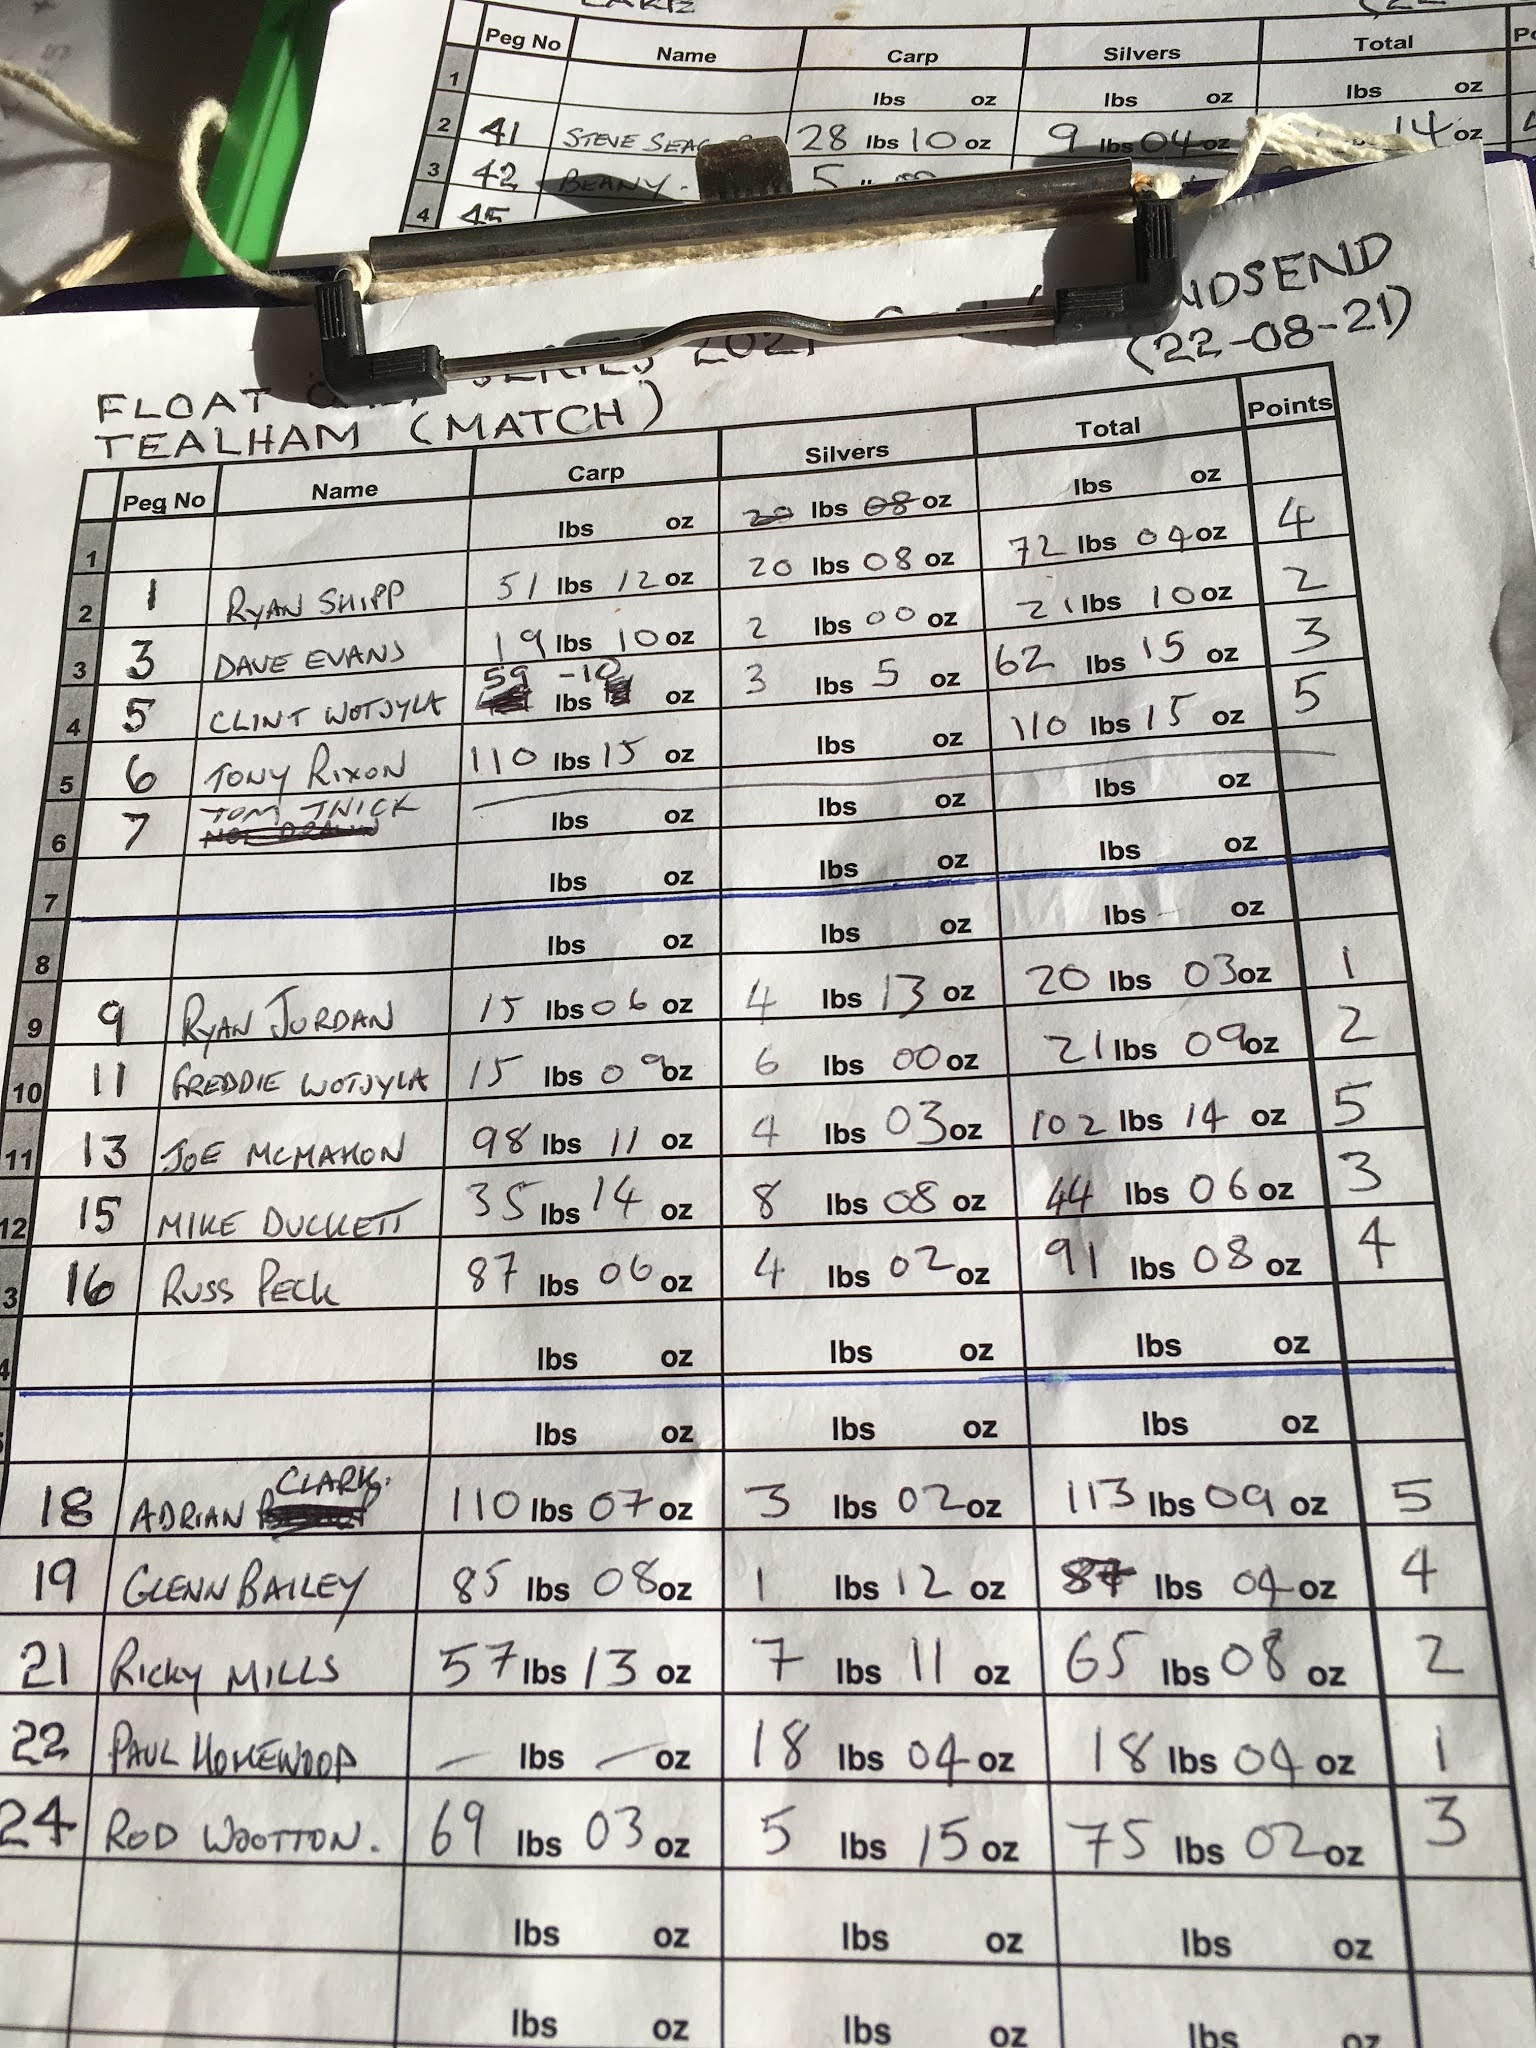 Peg No Name Carp Silvers Total
1 lbs oz lbs oz lbs oz
2 41 STEVE 28 lbs 10 oz 9 lbs 04 oz 14 oz
3 42 BEANY. 5
4 45
SERIES 2021
(22-08-21)
FLOAT
TEALHAM (MATCH)
Peg No Name Carp Silvers Total Points
1 lbs oz 20 lbs 08 oz lbs oz
2 1 RYAN SHIPP 51 lbs 12 oz 20 lbs 08 oz 72 lbs 04 oz 4
3 3 DAVE EVANS 19 lbs 10 oz 2 lbs 00 oz 21 lbs 10 oz 2
4 5 CLINT WOTJYLA 59 -10 lbs oz 3 lbs 5 oz 62 lbs 15 oz 3
5 6 TONY RIXON 110 lbs 15 oz lbs oz 110 lbs 15 oz 5
6 7 TOM THICK NOT DRAWN lbs oz lbs oz lbs oz
7 lbs oz lbs oz lbs oz
8 lbs oz lbs oz lbs oz
9 9 RYAN JURDAN 15 lbs 06 oz 4 lbs 13 oz 20 lbs 03 oz 1
10 11 FREDDIE WOTJYLA 15 lbs 09 oz 6 lbs 00 oz 21 lbs 09 oz 2
11 13 JOE MCMAHON 98 lbs 11 oz 4 lbs 03 oz 102 lbs 14 oz 5
12 15 MIKE DUCKETT 35 lbs 14 oz 8 lbs 08 oz 44 lbs 06 oz 3
3 16 RUSS PECK 87 lbs 06 oz 4 lbs 02 oz 91 lbs 08 oz 4
4 lbs oz lbs oz lbs oz
lbs oz lbs oz lbs oz
18 ADRIAN CLARK. 110 lbs 07 oz 3 lbs 02 oz 113 lbs 09 oz 5
19 GLENN BAILEY 85 lbs 08 oz 1 lbs 12 oz 87 lbs 04 oz 4
21 RICKY MILLS 57 lbs 13 oz 7 lbs 11 oz 65 lbs 08 oz 2
22 PAUL HOMEWOOD — lbs — oz 18 lbs 04 oz 18 lbs 04 oz 1
24 ROD WOOTTON. 69 lbs 03 oz 5 lbs 15 oz 75 lbs 02 oz 3
lbs oz lbs oz lbs oz
lbs oz lbs oz lbs oz